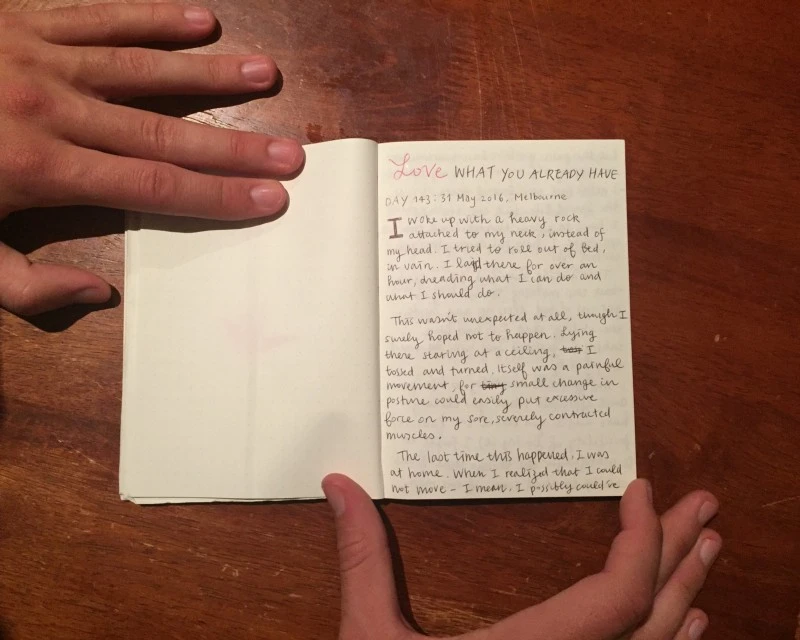 Love WHAT YOU ALREADY HAVE
DAY 143: 31 May 2016, Melbourne
I woke up with a heavy rock
attached to my neck, instead of
my head. I tried to roll out of bed,
in vain. I laid there for over an
hour, dreading what I can do and
what I should do.
This wasn't unexpected at all, though I
surely hoped not to happen. Lying
there staring at a ceiling, I
tossed and turned, itself was a painful
movement, for tiny small change in
posture could easily put excessive
force on my sore, severely contracted
muscles.
The last time this happened, I was
at home. When I realized that I could
not move - I mean, I possibly could've